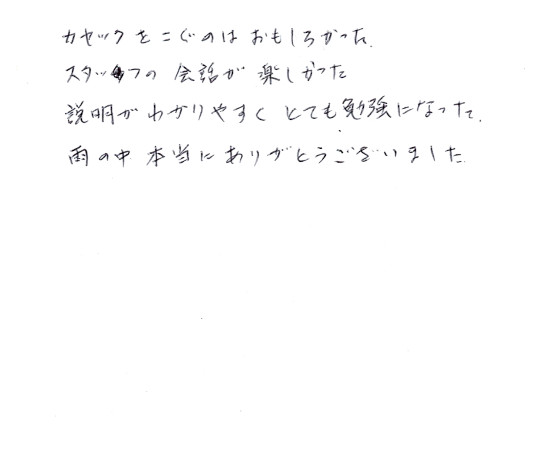 カヤックをこぐのはおもしろかった.
スタッフの会話が楽しかった
説明がわかりやすくとても勉強になった.
雨の中本当にありがとうございました.